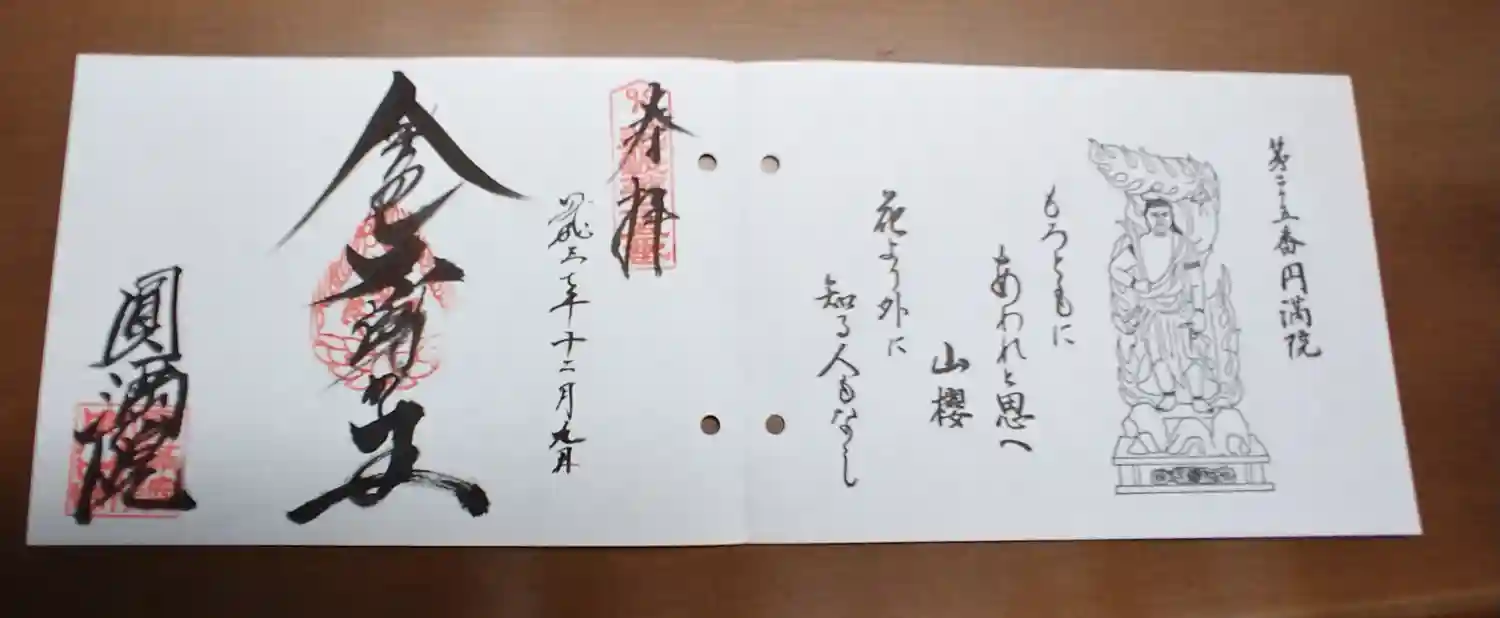 第二五番円満院
もろともに
あわれと思へ
山櫻
花より外に
知る人もなし
奉拝
平成三十年十二月九日
圓満院